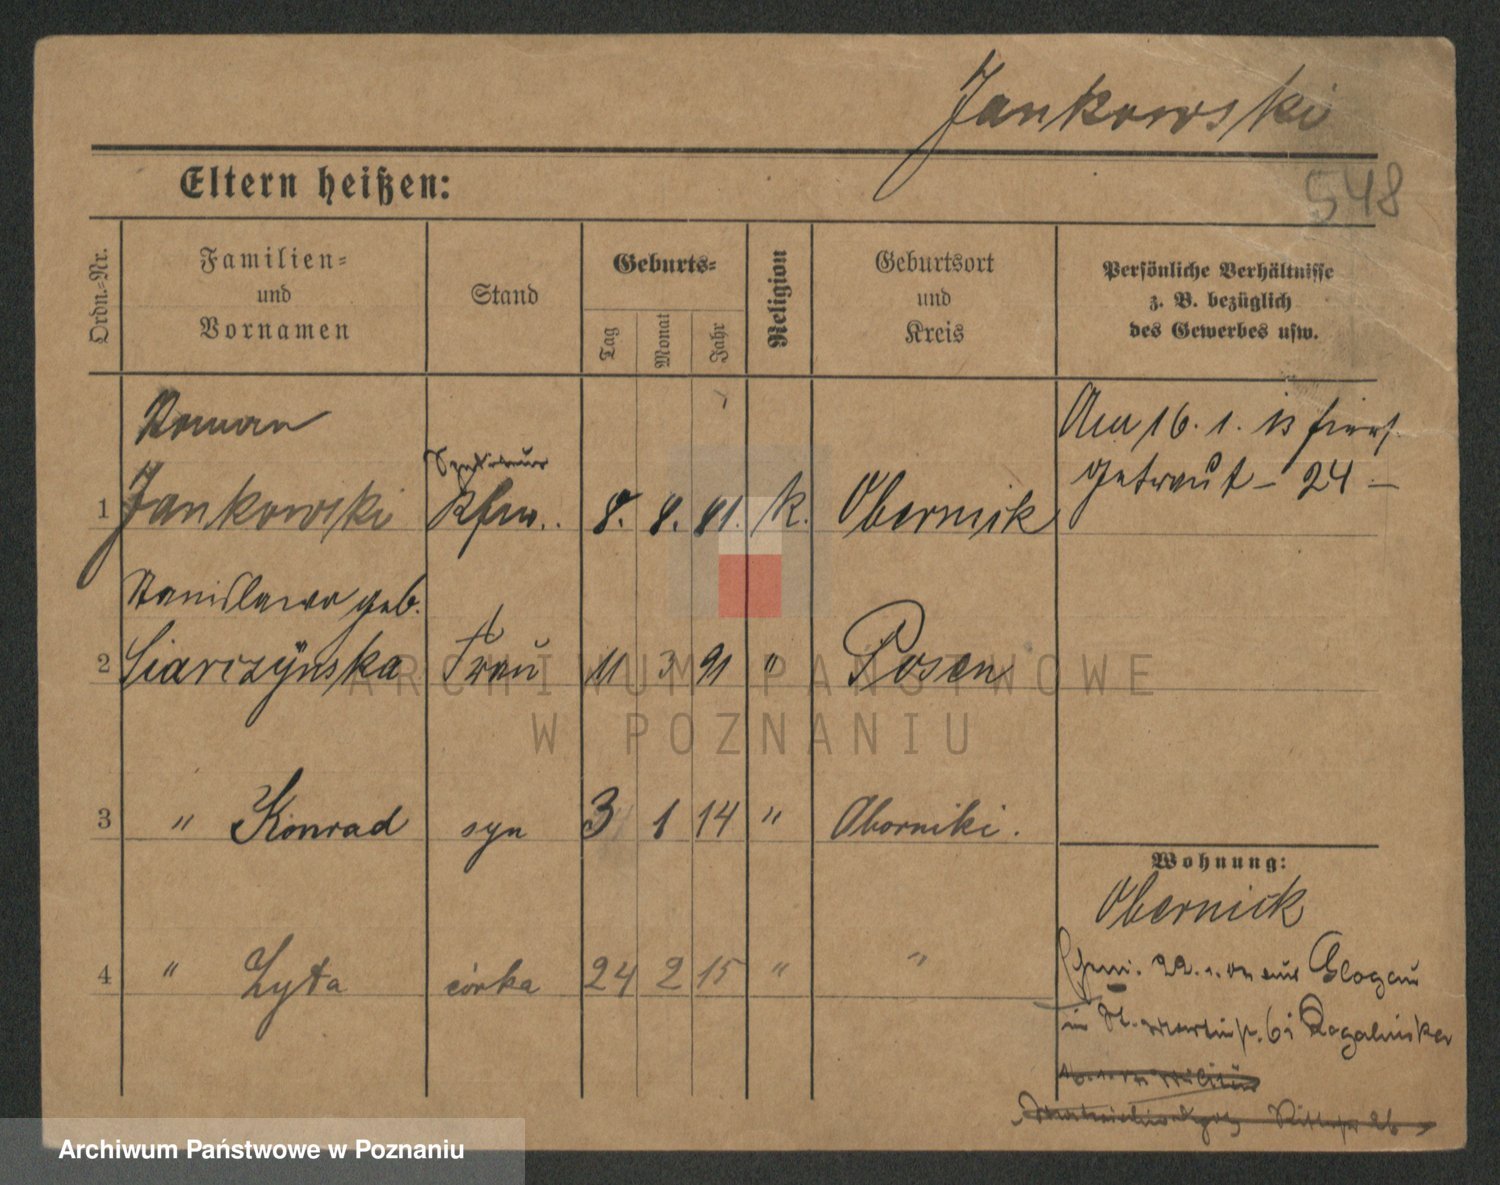 Jankowski
548
Eltern heißen:
Ordn.-Nr.
Familien-
und
Vornamen
Stand
Geburts-
Tag
Monat
Jahr
Religion
Geburtsort
und
Kreis
Persönliche Verhältnisse
z. B. bezüglich
des Gewerbes usw.
Roman
1 Jankowski Kfm. 8. 8. 81. k. Obernick
Am 16. 1. 13 hier
getraut - 24 -
Stanislawa geb.
2 Siarczyńska Frau 11 3 91 " Posen
3 " Konrad syn 3 1 14 " Oborniki.
Wohnung:
Obernick
4 " Zyta córka 24 2 15 " "
22. 1. aus Glogau
in St. Martinstr. 6 Rogalinska
ARCHIWUM PAŃSTWOWE
W POZNANIU
Archiwum Państwowe w Poznaniu